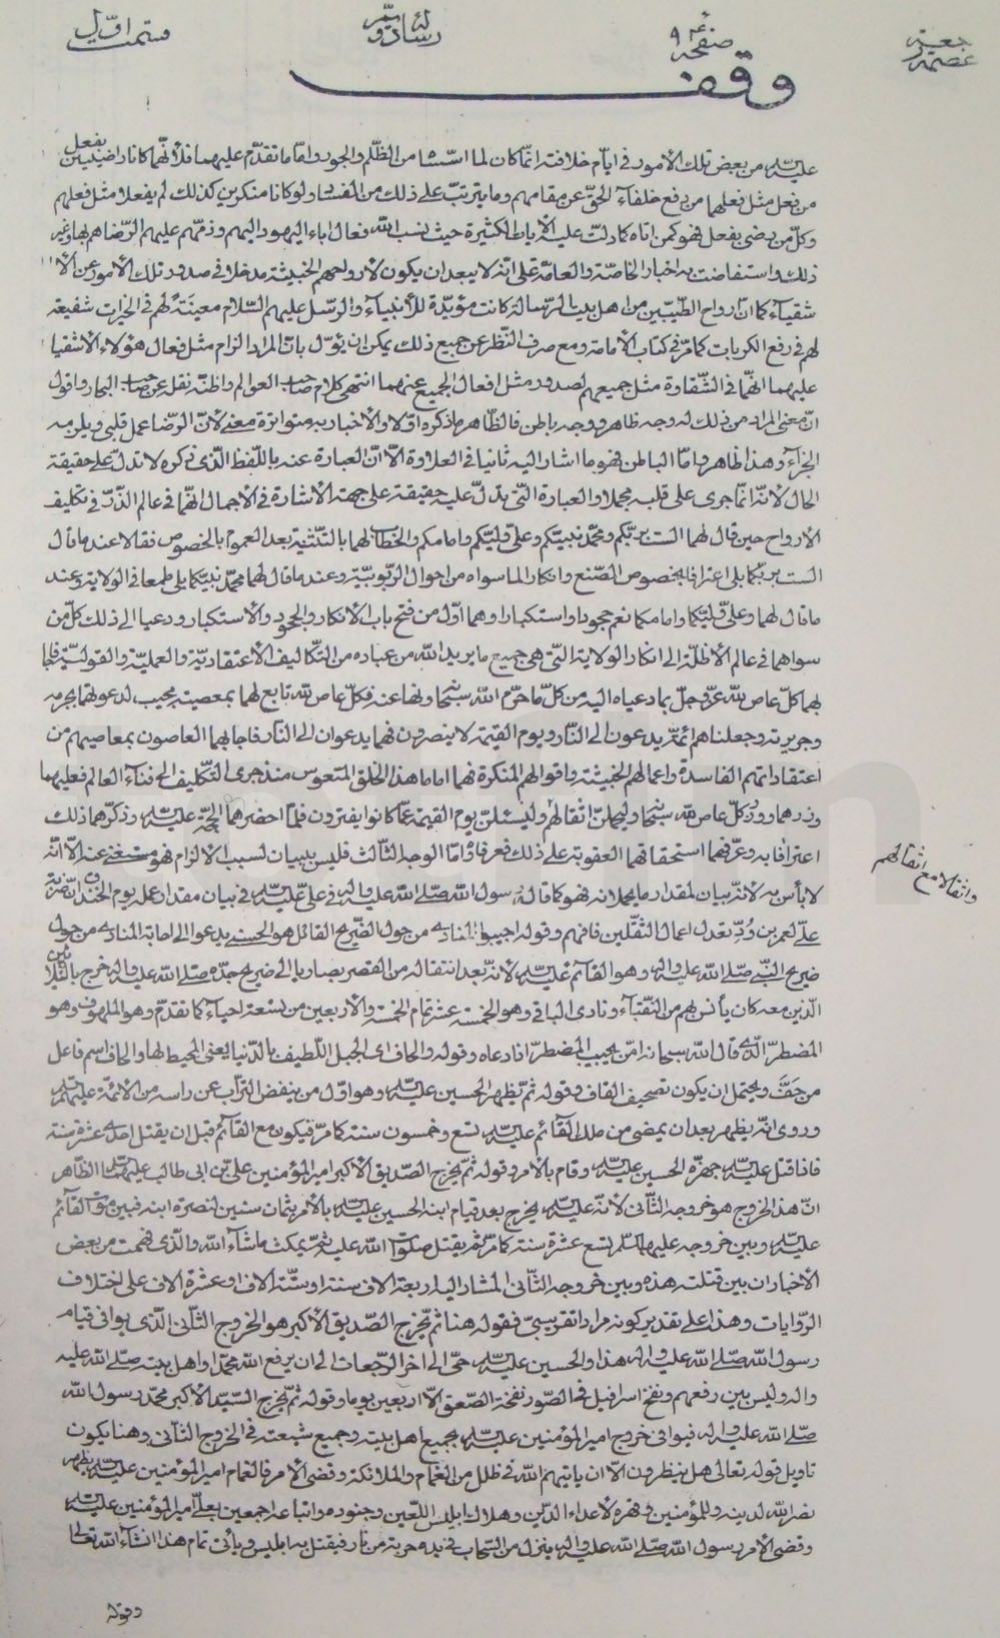 جعية عصمتية
صفحه ٩
رساله دويم
قسمت اول
وقف
عليه السلام من بعض تلك الأمور في ايام خلافته انما كان لما اسّسا من الظلم والجور واما ما تقدم عليهما فلأنهما كانا راضيين بفعل
من فعل مثل فعلهما من دفع خلفاء الحق عن مقامهم وما يترتب على ذلك من الفساد ولو كانا منكرين كذلك لم يفعلا مثل فعلهم
وكل من رضى بفعل فهو كمن اتاه كما دلت عليه الايات الكثيرة حيث نسب الله فعال اباء اليهود اليهم وذمهم عليهم الرضاهم بها وغير
ذلك واستفاضت به اخبار الخاصة والعامة على انه لا يبعد ان يكون لارواحهم الخبيثة مدخلا في صدور تلك الأمور عن الأ
شقياء كما ان ارواح الطيبين من اهل بيت الرسالة كانت مؤيدة للأنبياء والرسل عليهم السلام معينة لهم في الخيرات شفيعة
لهم في رفع الكربات كما مر في كتاب الأمامة ومع صرف النظر عن جميع ذلك يمكن ان يؤول بان المراد الزام مثل فعال هؤلاء الأشقيا
عليهما انهما في الشقاوة مثل جميعهم لصدور مثل افعال الجميع عنهما انتهى كلام صاحب العوالم واظنه نقل عن صاحب البحار واقول
ان معنى المراد من ذلك له وجه ظاهر ووجه باطن فالظاهر ما ذكره اولا والأخبار به متواترة معنى لأن الرضا عمل قلبي ويلزمه
الجزاء وهذا ظاهر واما الباطن فهو ما اشار اليه ثانيا في العلاوة الا ان العبارة عنه باللفظ الذي ذكره لا تدل على حقيقة
الحال لأنه انما جرى على قلبه مجملا والعبارة التي يدل عليه حقيقة على جهة الأشارة في الأجمال انهما في عالم الذر في تكليف
الأرواح حين قال لهما الست بربكم ومحمد نبيكم وعلي وليكم وامامكم والخطاب لهما بالتثنية بعد العموم بالخصوص فقالا عند ما قال
الست بربكما بلى اعترافا بخصوص الصنع وانكارا لما سواه من احوال الربوبية وعند ما قال لهما محمد نبيكما بلى طمعا في الولاية وعند
ما قال لهما وعلي وليكما وامامكما نعم جحودا واستكبارا وهما اول من فتح باب الأنكار والجحود والأستكبار ودعيا الى ذلك كل من
سواهما في عالم الأظلة الى انكار الولاية التي هي جميع ما يريد الله من عباده من التكاليف الأعتقادية والعملية والقولية فاجا
بهما كل عاص لله عز وجل بما دعياه اليه من كل ما حرم الله سبحانه ونها عنه فكل عاص لله تابع لهما بمعصيته مجيب لدعوتهما بجرمه
وجريرته وجعلناهم ائمة يدعون الى النار ويوم القيمة لا ينصرون فهما يدعوان الى النار فاجابهما العاصون بمعاصيهم من
اعتقاداتهم الفاسدة واعمالهم الخبيثة واقوالهم المنكرة فهما اماما هذا الخلق المتعوس منذ جرى التكليف الى فناء العالم فعليهما
وزرهما ووزر كل عاص لله سبحانه وليحملن اثقالهم وليسئلن يوم القيمة عما كانوا يفترون فلما احضرهما الحجة عليه السلام وذكرهما ذلك
واثقالا مع اثقالهم
اعترافا به وعرفهما استحقاقهما العقوبة على ذلك فعرفا واما الوجه الثالث فليس ببيان لسبب الالزام فهو مستغنى عنه الا انه
لا بأس به لأنه بيان لمقدار ما يحملانه فهو كما قال رسول الله صلى الله عليه واله في علي عليه السلام في بيان مقدار عمله يوم الخندق ان ضربة
علي لعمرو بن ودّ تعدل اعمال الثقلين فافهم وقوله اجيبوا المنادي من حول الضريح القائل هو الحسني يدعو الى اجابة المنادي من حول
ضريح النبي صلى الله عليه واله وهو القائم عليه السلام لأنه بعد انتقاله من القصر بصاريا الى ضريح جده صلى الله عليه واله خرج بالثلاثين
الذين معه كان يأنس بهم من النقباء ونادى الباقي وهو الخمسة عشر تمام الخمسة والأربعين من تسعة احياء كما تقدم وهو الملهوف وهو
المضطر الذي قال الله سبحانه امن يجيب المضطر اذا دعاه وقوله والحاف اى الجبل اللطيف بالدنيا يعني المحيط لها والحاف اسم فاعل
من حَفَّ ويحتمل ان يكون تصحيف القاف وقوله ثم يظهر الحسين عليه السلام وهو اول من ينفض التراب عن راسه من الأئمة عليهم السلام
وروى انه يظهر بعد ان يمضي من ملك القائم عليه السلام تسع وخمسون سنة كما مر فيكون مع القائم قبل ان يقتل احدى عشرة سنة
فاذا قتل عليه السلام جهزه الحسين عليه السلام وقام بالأمر وقوله ثم يخرج الصديق الأكبر امير المؤمنين علي بن ابى طالب عليهما السلام الظاهر
ان هذا الخروج هو خروجه الثاني لأنه عليه السلام يخرج بعد قيام ابنه الحسين عليه السلام بالأمر بثمان سنين لنصرة ابنه فبين موت القائم
عليه السلام وبين خروجه عليهما السلام تسع عشرة سنة كما مر ثم يقتل صلوات الله عليه ثم يمكث ما شاء الله والذي فهمت من بعض
الأخبار ان بين قتلته هذه وبين خروجه الثاني المشار اليه اربعة الاف سنة او ستة الاف او عشرة الاف على اختلاف
الروايات وهذا على تقدير كونه مراد اتقريبي فقوله هنا ثم يخرج الصديق الأكبر هو الخروج الثاني الذي يوافى قيامه
رسول الله صلى الله عليه واله هذا والحسين عليه السلام حي الى اخر الرجعات الى ان يرفع الله محمدا واهل بيته صلى الله عليه
واله وليس بين رفعهم ونفخ اسرافيل في الصور نفخة الصعق الا اربعين يوما وقوله ثم يخرج السيد الأكبر محمد رسول الله
صلى الله عليه واله فيوافى خروج امير المؤمنين عليه السلام بجميع اهل بيته وجميع شيعته في الخروج الثاني وهنا يكون
تاويل قوله تعالى هل ينظرون الا ان ياتيهم الله في ظلل من الغمام والملائكة وقضي الأمر فالغمام امير المؤمنين عليه السلام يظهر
نصر الله لدينه وللمؤمنين وقهره لأعداء الدين وهلاك ابليس اللعين وجنوده واتباعه اجمعين بعلي امير المؤمنين عليه السلام
وقضي الأمر رسول الله صلى الله عليه واله ينزل من السحاب في يده حربة من نار فيقتل به ابليس ويأتى تمام هذا انشاء الله تعالى
وقوله